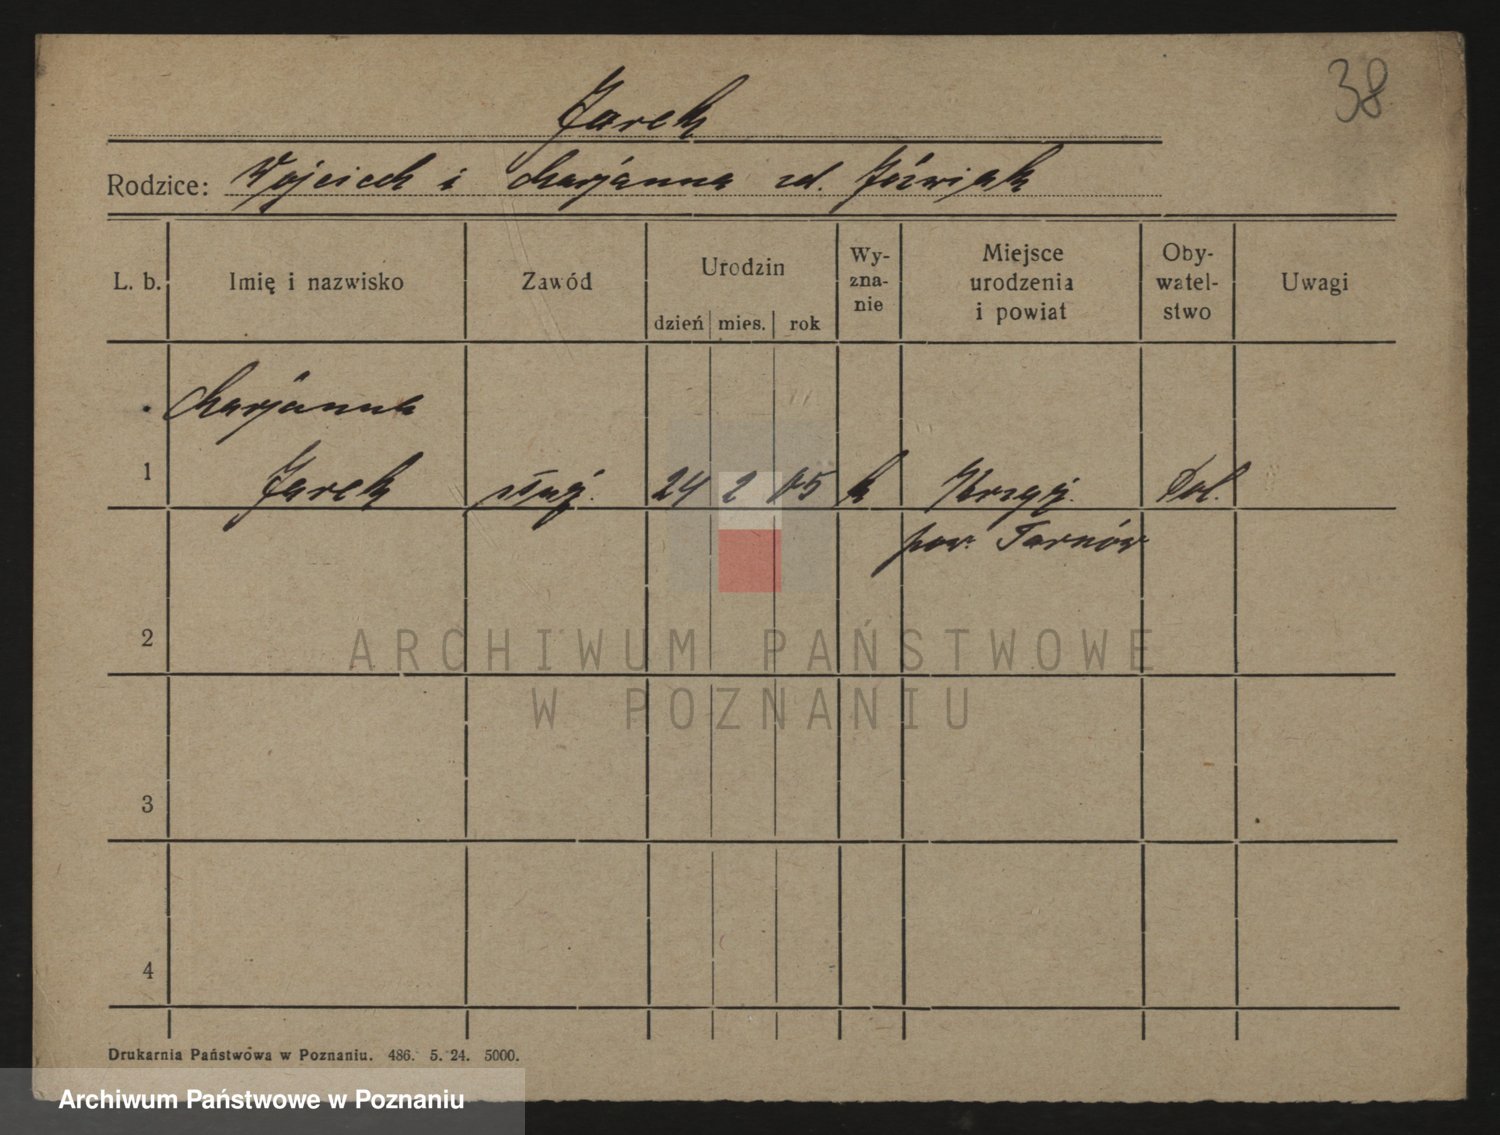 38
Jarek
Rodzice: Wojciech i Marjanna zd. Jóźwiak
L. b. Imię i nazwisko Zawód Urodzin Wy-zna-nie Miejsce urodzenia i powiat Oby-watel-stwo Uwagi
dzień mies. rok
Marjanna
1 Jarek służ. 24 2 05 k Pol.
pow. Tarnów
2
ARCHIWUM PAŃSTWOWE
W POZNANIU
3
4
Drukarnia Państwowa w Poznaniu. 486. 5. 24. 5000.
Archiwum Państwowe w Poznaniu